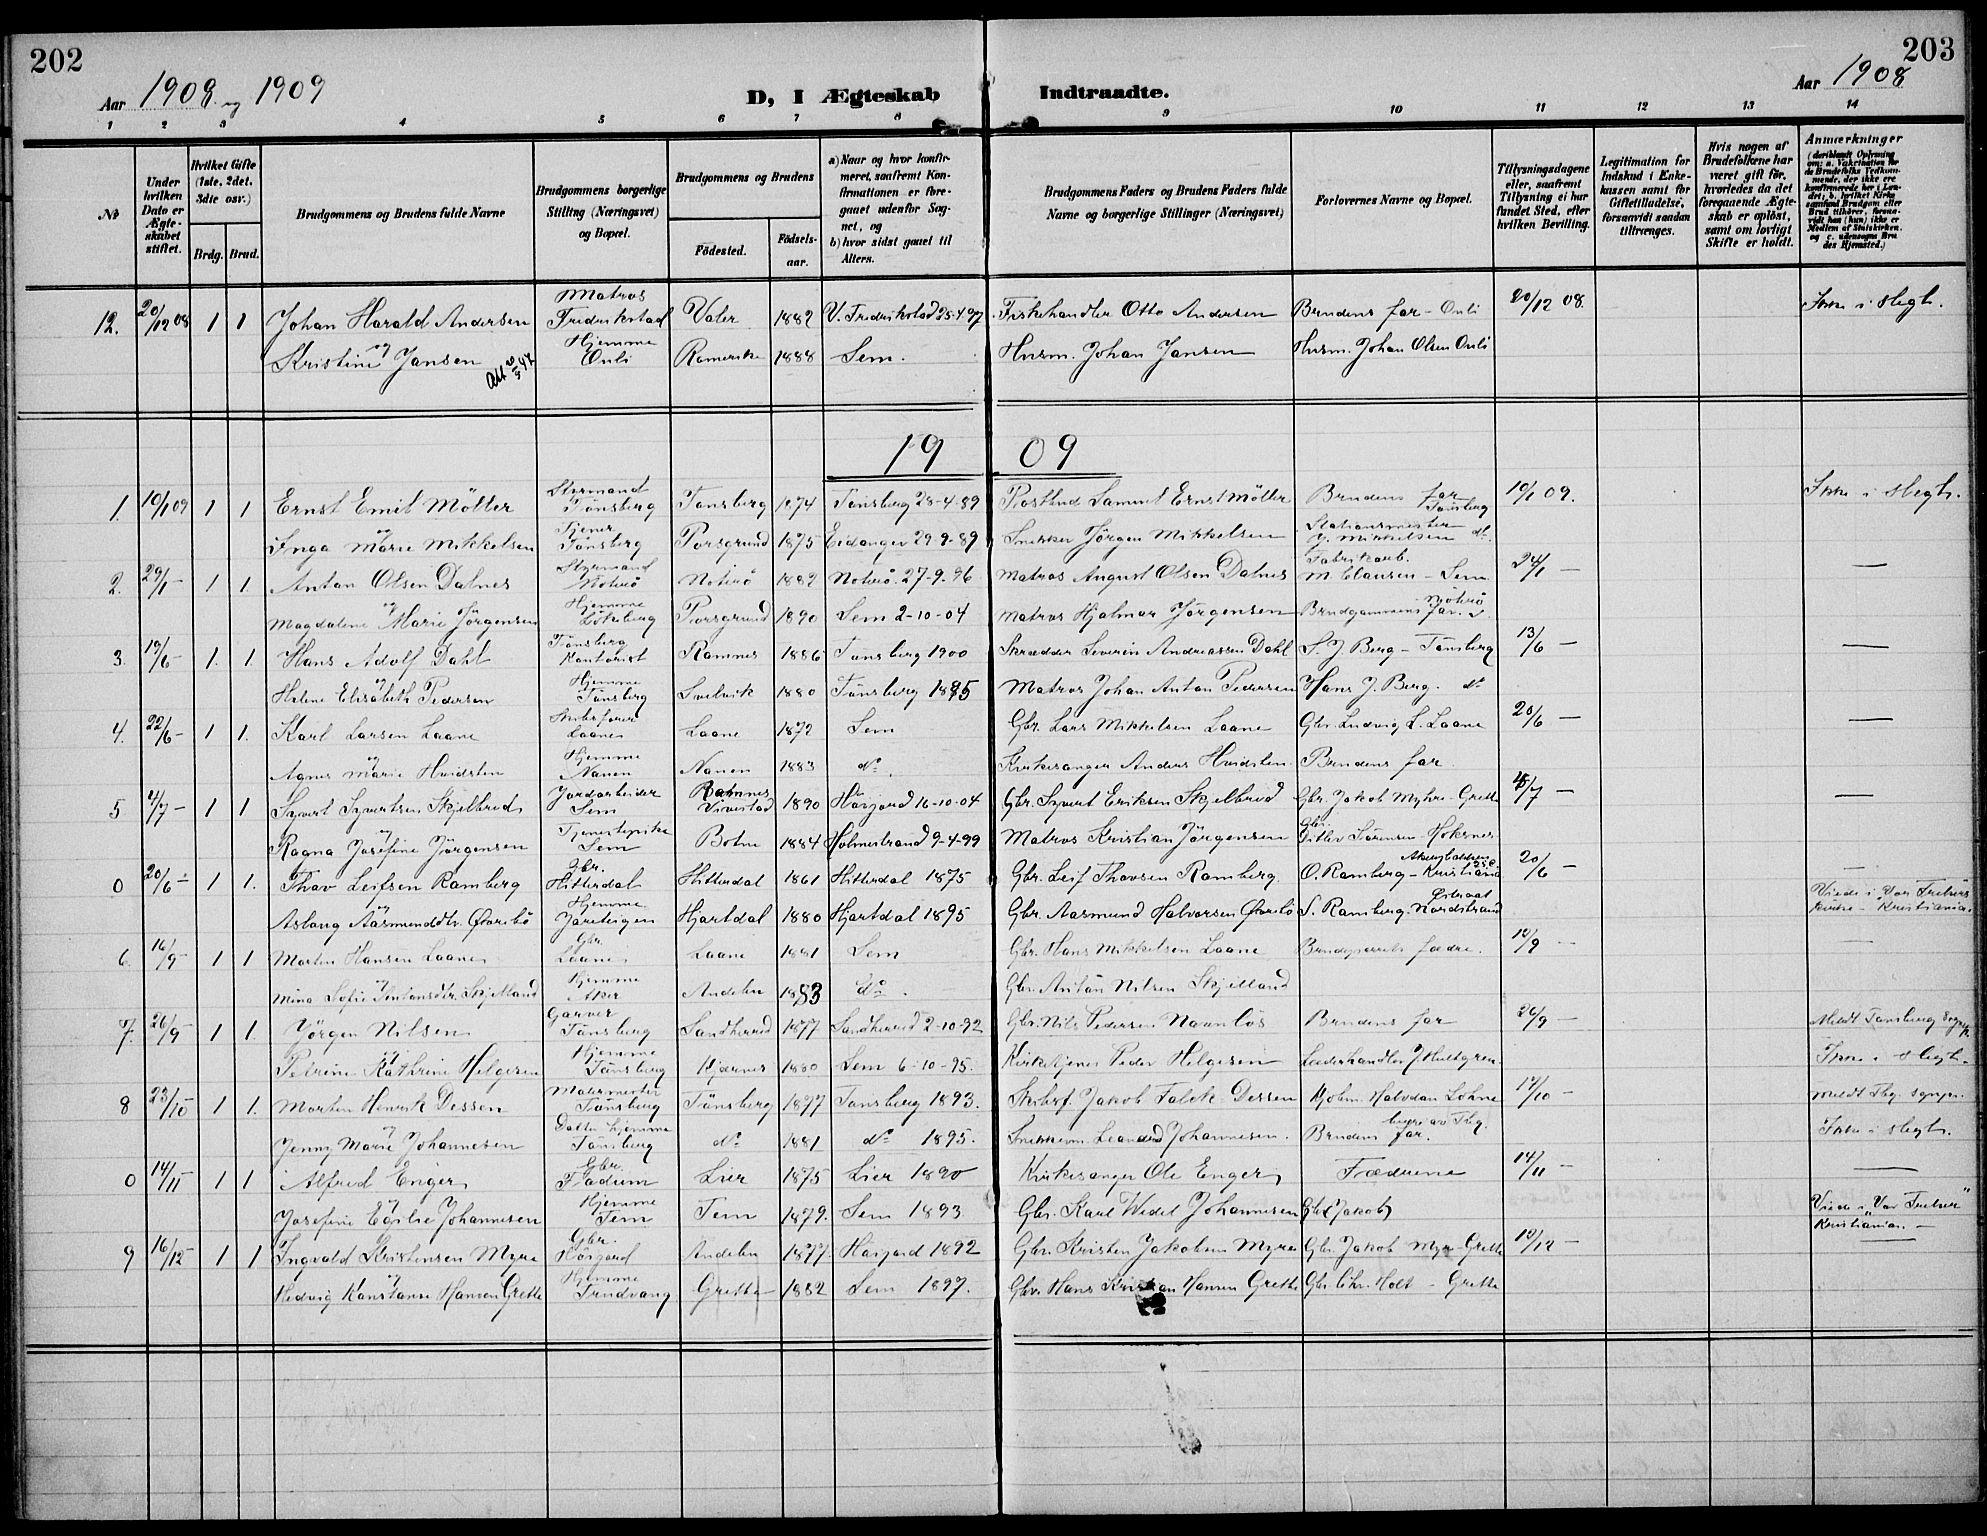 202
203
Aar 1908 og 1909
D, I Ægteskab Indtraadte.
Aar 1908
1 2 3 4 5 6 7 8 9 10 11 12 13 14
№
Under hvilken Dato er Ægteskabet stiftet.
Hvilket Gifte (1ste, 2det, 3die osv.)
Brdg. Brud.
Brudgommens og Brudens fulde Navne
Brudgommens borgerlige Stilling (Næringsvei) og Bopæl.
Brudgommens og Brudens
Födested.
Födselsaar.
a) Naar og hvor konfirmeret, saafremt Konfirmationen er foregaaet udenfor Sognet, og
b) hvor sidst gaaet til Alters.
Brudgommens Faders og Brudens Faders fulde Navne og borgerlige Stillinger (Næringsvei)
Forlovernes Navne og Bopæl.
Tillysningsdagene eller, saafremt Tillysning ei har fundet Sted, efter hvilken Bevilling.
Legitimation for Indskud i Enkekassen samt for Giftetilladelse, forsaavidt saadan tiltrænges.
Hvis nogen af Brudefolkene har været gift för, hvorledes da det foregaaende Ægteskab er oplöst, samt om lovligt Skifte er holdt.
Anmerkninger
12. 20/12 08 1 1 Johan Harald Andersen Matros Fredrikstad Valer 1882 V. Fredrikstad 25-4-97 Fiskehandler Otto Andersen Brudens far - Onli 20/12 08. Ikke i slegt.
og Kristine Jansen Att 5/3 47 Hjemme Onli Ramerike 1888 Sem. Husm. Johan Jansen Husm. Johan Olsen Onli
1909
1. 10/1 09 1 1 Ernst Emil Möller Styrmand Tönsberg Tönsberg 1874 Tönsberg 28-4-89 Samuel Ernst Möller Brudens far Tönsberg 10/1 09. Ikke i slegt.
og Inga Marie Mikkelsen Tjener Tönsberg Porsgrund 1875 Eidanger 29-9-89 Snekker Jörgen Mikkelsen Stationsmester J. Mikkelsen do.
2. 29/1 - 1 1. Anton Olsen Dalnes Styrmand Nöterö Nöterö 1882 Nöterö. 27-9-96 Matros August Olsen Dalnes Fabrikarb. M. Clausen - Sem. 24/1 - —
og Magdalene Marie Jörgensen Hjemme Lökeberg Porsgrund 1890 Sem 2-10-04 Matros Hjalmar Jörgensen Brudgommens far. Nöterö
3. 19/6 - 1. 1. Hans Adolf Dahl Tönsberg Kontorist Ramnes 1886 Tönsberg 1900 Skrædder Severin Andreassen Dahl S. J. Berg - Tönsberg 13/6 - —
og Helene Elisabeth Pedersen Hjemme Tönsberg Svelvik 1880 Tönsberg 1895 Matros Johan Anton Pedersen Hans J. Berg. do
4. 22/6 - 1 1. Karl Larsen Laane Skibsförer Laane Laane 1872 Sem Gbr. Lars Mikkelsen Laane Gbr. Ludvig L. Laane 20/6 - —
og Agnes Marie Hvidsten Hjemme Nanen Nanen 1883 do. Kirkesanger Anders Hvidsten Brudens far.
5 4/7 - 1 1 Syvert Syvertsen Skjelbred Jordarbeider Sem Ramnes Vivestad 1890 Hörjord 16-10-04 Gbr. Syvert Eriksen Skjelbred Gbr. Jakob Myhre - Grette 4/7 - —
og Ragna Josefine Jörgensen Tjenestepike Sem Botne 1884 Holmestrand 9-4-99 Matros Kristian Jörgensen Gbr. Ditlev Sörensen - Hoksnes
0 20/6 - 1 1. Thov Leifsen Ramberg Gbr. Hitterdal Hitterdal 1861 Hitterdal 1875 Gbr. Leif Thovsen Ramberg O. Ramberg - Kristiania 20/6 - —
og Aslaug Aasmundsdtr. Övrebö Hjemme Jareteigen Hjartdal 1880 Hjartdal 1895 Gbr. Aasmund Halvorsen Övrebö S. Ramberg. Nordstrand Viede i Vor Frelsers kirke - Kristiania.
6. 16/9 - 1 1 Martin Hansen Laane Gbr. Laane Laane 1881 Sem Gbr. Hans Mikkelsen Laane Brudeparrets fædre. 12/9 - —
og Mina Sofie Antonsdtr. Skjelland Hjemme Aker Andebu 1883 do. Gbr. Anton Nilsen Skjelland
7. 26/9 - 1 1. Jörgen Nilsen Garver Tönsberg Sandherred 1877 Sandherred 2-10-92 Gbr. Nils Pedersen Navnlös Brudens far 26/9 - Meldt Tönsberg Sognepr.
og Petrine Kathrine Helgesen Hjemme Tönsberg Hjærnes 1880 Sem 6-10-95. Kirketjener Peder Helgesen Læderhandler J. Hultgren Ikke i slegt.
8 23/10 1 1. Morten Henrik Dessen Malermester Tönsberg Tönsberg 1877 Tönsberg 1893. Skibsf. Jakob Falck Dessen Kjöbm. Halvdan Löhne 17/10 - Meldt Tbg. sognepr.
og Jenny Marie Johannesen Datter hjemme Tönsberg do 1881 do 1895. Snekkerm. Leanderd Johannesen. Brudens far. begge av Tbg. Ikke i slegt.
0 14/11 1 1 Alfred Enger Gbr. Fladum Lier 1875 Lier 1890 Kirkesanger Ole Enger Fædrene 14/11 - —
og Josefine Egilie Johannesen Hjemme Fem Fem 1879. Sem 1893 Gbr. Karl Wedel Johannesen Gbr. (Jakob) Viede i "Vor Frelser" Kristiania. -
9 16/12 1 1 Ingvald Kristensen Myre Gbr. Hörjord Andebu 1877. Hörjord 1892 Gbr. Kristen Jakobsen Myre Gbr. Jakob Myre - Grette 12/12 - —
og Hedvig Konstanse Hansen Grette Hjemme Trudvang Grette 1882 Sem 1897. Gbr. Hans Kristian Hansen Grette Gbr. Chr. Holt - Grette